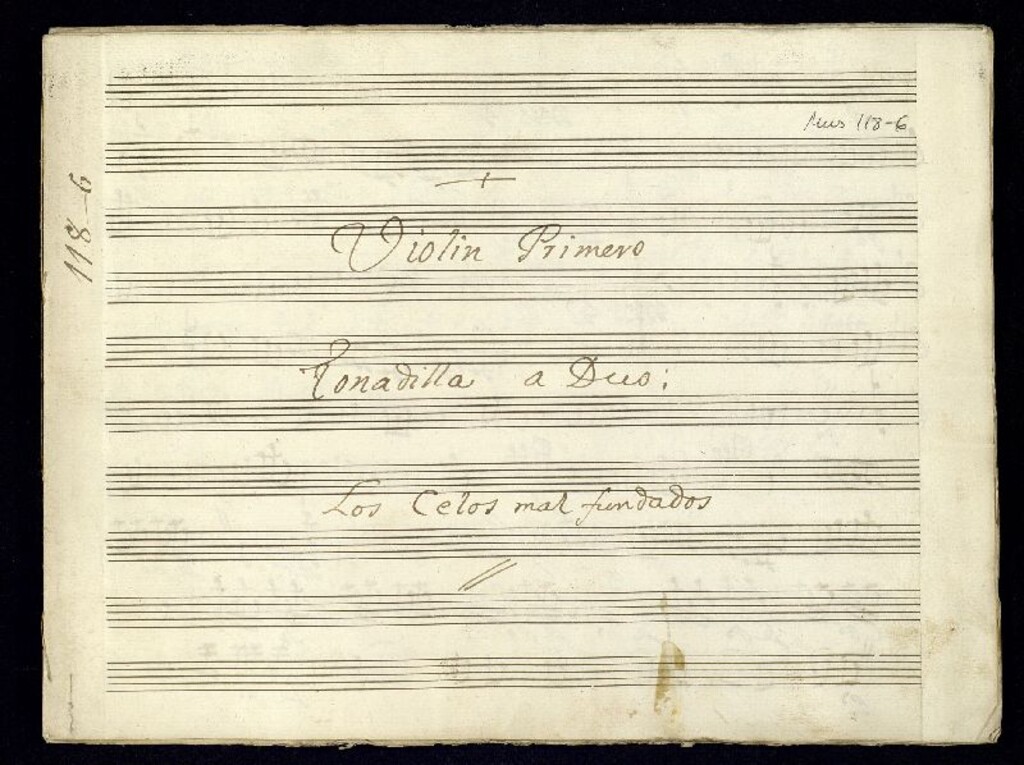 Mus 118-6
118-6
Violin Primero
Tonadilla a Duo:
Los Celos mal fundados